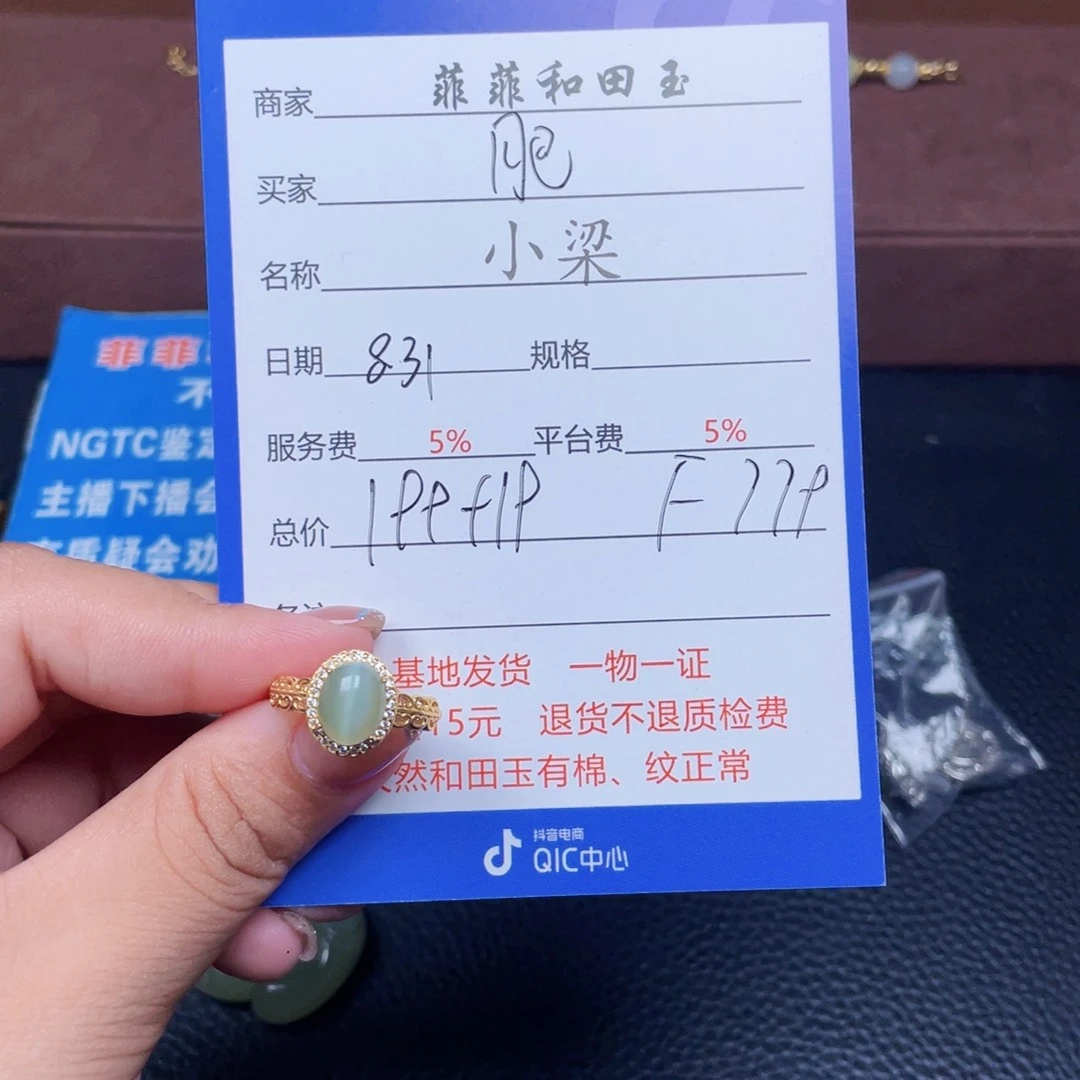 商家 菲菲和田玉
买家 肥
名称 小梁
日期 831 规格
服务费 5% 平台费 5%
总价
基地发货 一物一证
15元 退货不退质检费
然和田玉有棉、纹正常
抖音电商
QIC中心
菲菲
不
NGTC鉴定
主播下播会
质疑会劝